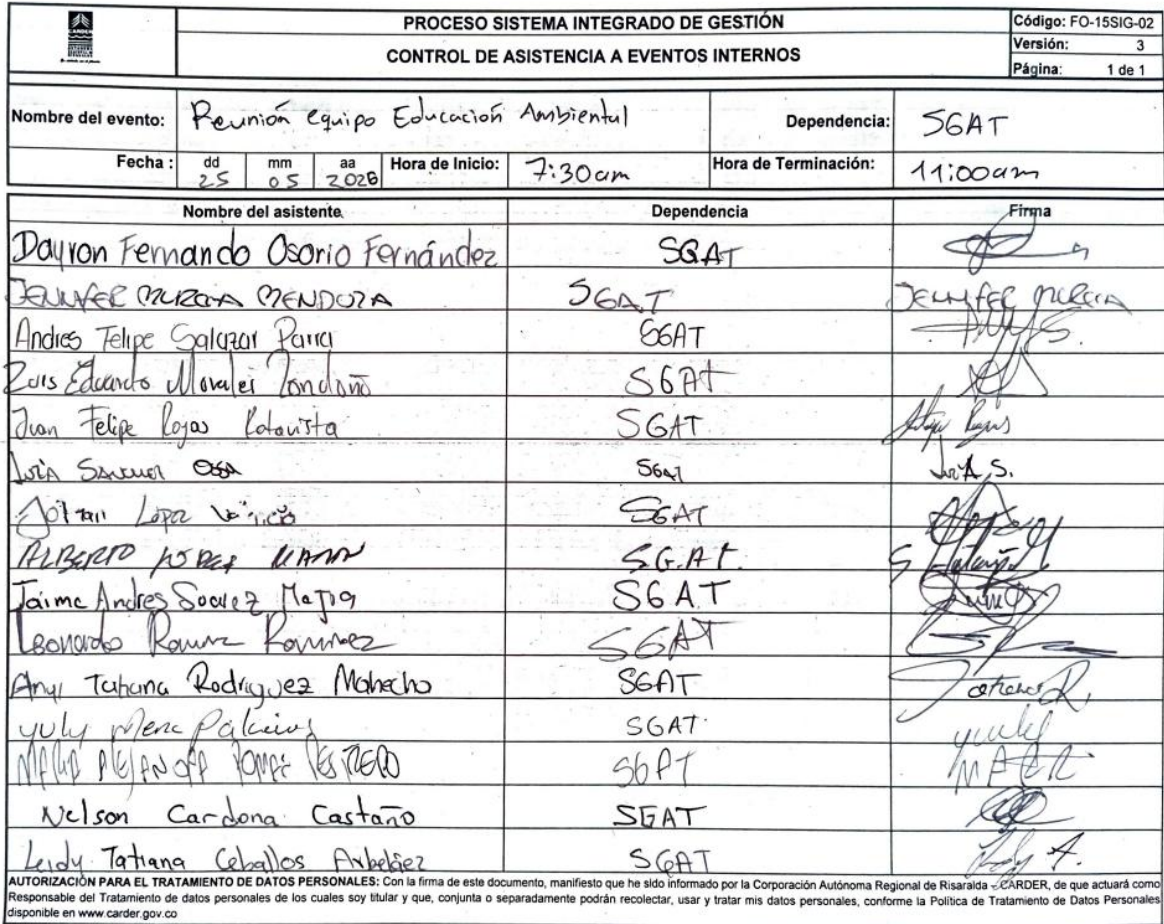 CARDER
PROCESO SISTEMA INTEGRADO DE GESTIÓN
CONTROL DE ASISTENCIA A EVENTOS INTERNOS
Código: FO-15SIG-02
Versión: 3
Página: 1 de 1
Nombre del evento: Reunión equipo Educación Ambiental Dependencia: SGAT
Fecha : dd mm aa Hora de Inicio: 7:30am Hora de Terminación: 11:00am
25 05 2026
Nombre del asistente Dependencia Firma
Dayron Fernando Osorio Fernández SGAT
JENNYFER MURCIA MENDOZA SGAT JENNYFER MURCIA
Andres Felipe Salazar Parra SGAT
Luis Eduardo Morales Londoño SGAT
Juan Felipe Rojas SGAT
SANCHEZ OSSA SGAT
López SGAT
ALBERTO SGAT.
Jaime Andres Suarez Mejia SGAT
Leonardo Ramirez Ramirez SGAT
Anyi Tatiana Rodriguez Mahecha SGAT Tatiana R.
yuly Mena Palacios SGAT yuly
MARIA ALEJANDRA RESTREPO SGAT
Nelson Cardona Castaño SGAT
Leidy Tatiana Ceballos Arbeláez SGAT Leidy A.
AUTORIZACIÓN PARA EL TRATAMIENTO DE DATOS PERSONALES: Con la firma de este documento, manifiesto que he sido informado por la Corporación Autónoma Regional de Risaralda - CARDER, de que actuará como
Responsable del Tratamiento de datos personales de los cuales soy titular y que, conjunta o separadamente podrán recolectar, usar y tratar mis datos personales, conforme la Política de Tratamiento de Datos Personales
disponible en www.carder.gov.co